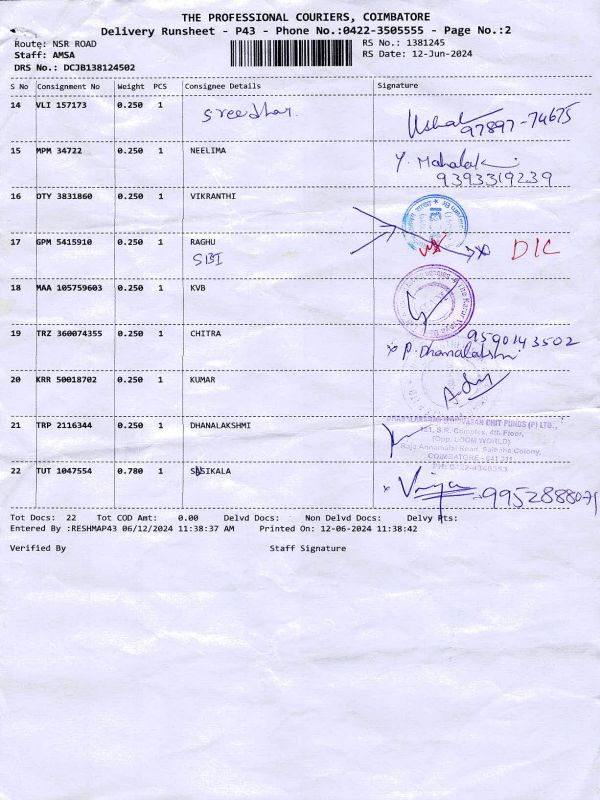 THE PROFESSIONAL COURIERS, COIMBATORE
Delivery Runsheet - P43 - Phone No.:0422-3505555 - Page No.:2
Route: NSR ROAD RS No.: 1381245
Staff: AMSA RS Date: 12-Jun-2024
DRS No.: DCJB138124502
S No Consignment No Weight PCS Consignee Details Signature
14 VLI 157173 0.250 1 Sreedhar. Usha 97897-74675
15 MPM 34722 0.250 1 NEELIMA Y. Mahalak 9393319239
16 OTY 3831860 0.250 1 VIKRANTHI
17 GPM 5415910 0.250 1 RAGHU D/C
SBI
18 MAA 105759603 0.250 1 KVB
19 TRZ 360074355 0.250 1 CHITRA 9590143502
P. Dhanalakshmi
20 KRR 50018702 0.250 1 KUMAR
21 TRP 2116344 0.250 1 DHANALAKSHMI
CHIT FUNDS (P) LTD.,
S.R. Complex, 4th Floor,
(Opp. LOOM WORLD)
Raja Annamalai Road, Saibaba Colony,
COIMBATORE - 641
22 TUT 1047554 0.780 1 SASIKALA 9952888071
Tot Docs: 22 Tot COD Amt: 0.00 Delvd Docs: Non Delvd Docs: Delvy Pts:
Entered By :RESHMAP43 06/12/2024 11:38:37 AM Printed On: 12-06-2024 11:38:42
Verified By Staff Signature